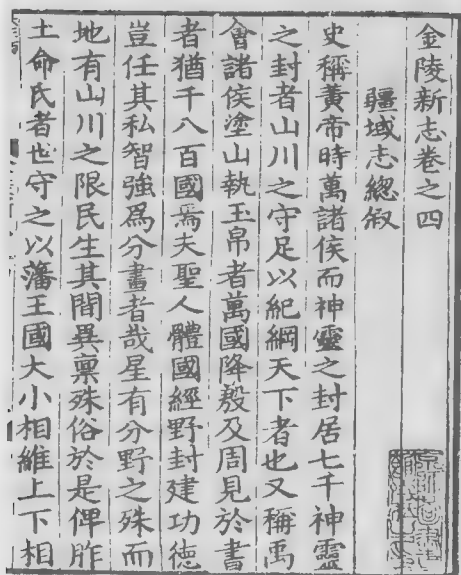 金陵新志卷之四
疆域志總叙
史稱黃帝時萬諸侯而神靈之封居七千神靈
之封者山川之守足以紀綱天下者也又稱禹
會諸侯塗山執玉帛者萬國降殷及周見於書
者猶千八百國焉夫聖人體國經野封建功徳
豈任其私智強爲分畫者哉星有分野之殊而
地有山川之限民生其間異稟殊俗於是俾胙
土命氏者世守之以藩王國大小相維上下相